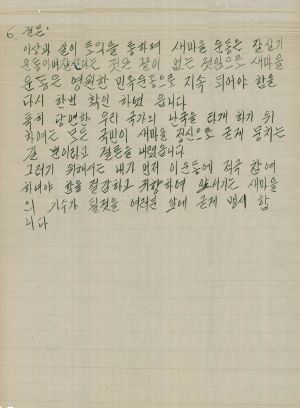 6. 결론:
이상과 같이 토의를 통하여 새마을 운동은 잘살기
운동이며 잘산다는 것은 끝이 없는 것임으로 새마을
운동은 영원한 민족운동으로 지속 되어야 함을
다시 한번 확인 하였 읍니다
특히 당면한 우리 국가의 난국을 타개 하기 위
하여는 모든 국민이 새마을 정신으로 굳게 뭉치는
길 뿐이라고 결론을 내렸읍니다
그러기 위해서는 내가 먼저 이운동에 적극 참여
하여야 함을 절감하고 귀향하여 앞서가는 새마을
의 기수가 될것을 여러분 앞에 굳게 맹서 합
니다